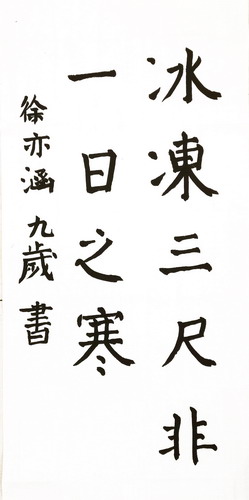 冰凍三尺非
一日之寒
徐亦涵九歲書